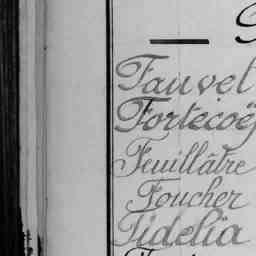 Fauvel
Fortecoë
Feuillâtre
Foucher
Fidelia